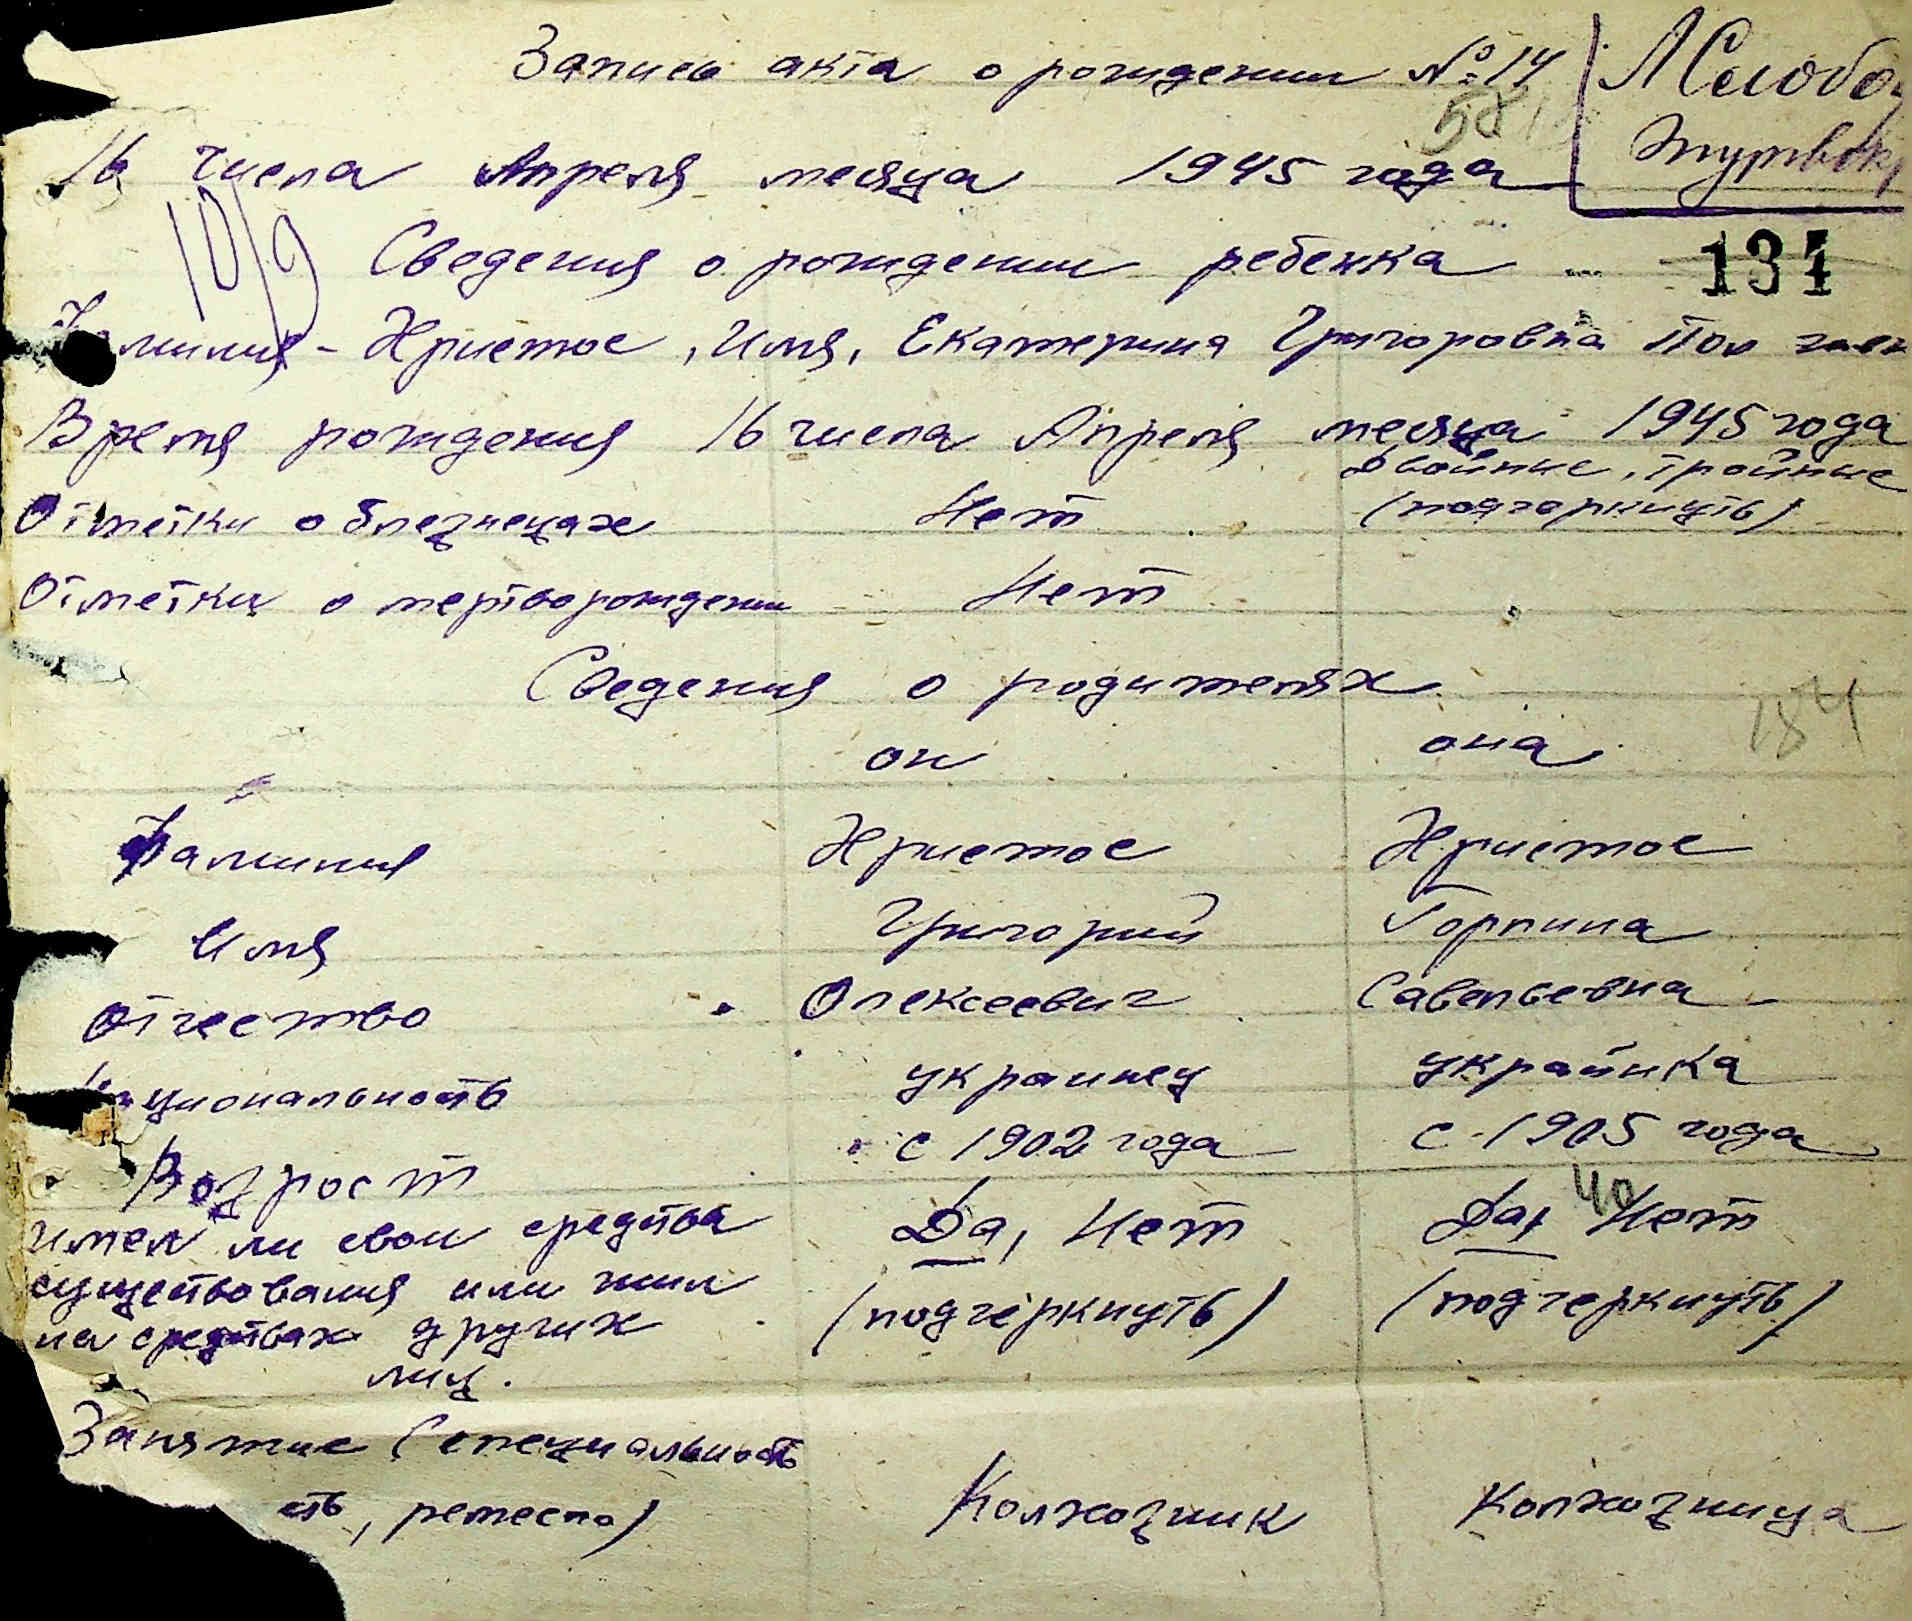 Запись акта о рождении № 14
М Слобо
58
16 числа Апреля месяца 1945 года
10/9
Сведения о рождении ребенка
134
Фамилия - Христос, Имя, Екатерина Григоровна Пол жен
Время рождения 16 числа Апреля месяца 1945 года
двойние, тройние
Отметки о близнецах Нет (подчеркнуть)
Отметки о мертворождении Нет
Сведения о родителях
184
он она
Фамилия Христос Христос
Имя Григорий Горпина
Отчество Олексеевич Савельевна
Национальность украинец украинка
Возрост с 1902 года с 1905 года
40
имел ли свои средства Да, Нет Да, Нет
существования или жил (подчеркнуть) (подчеркнуть)
на средствах других
лиц.
Занятие (специальность
сть, ремесло) Колхозник Колхозница